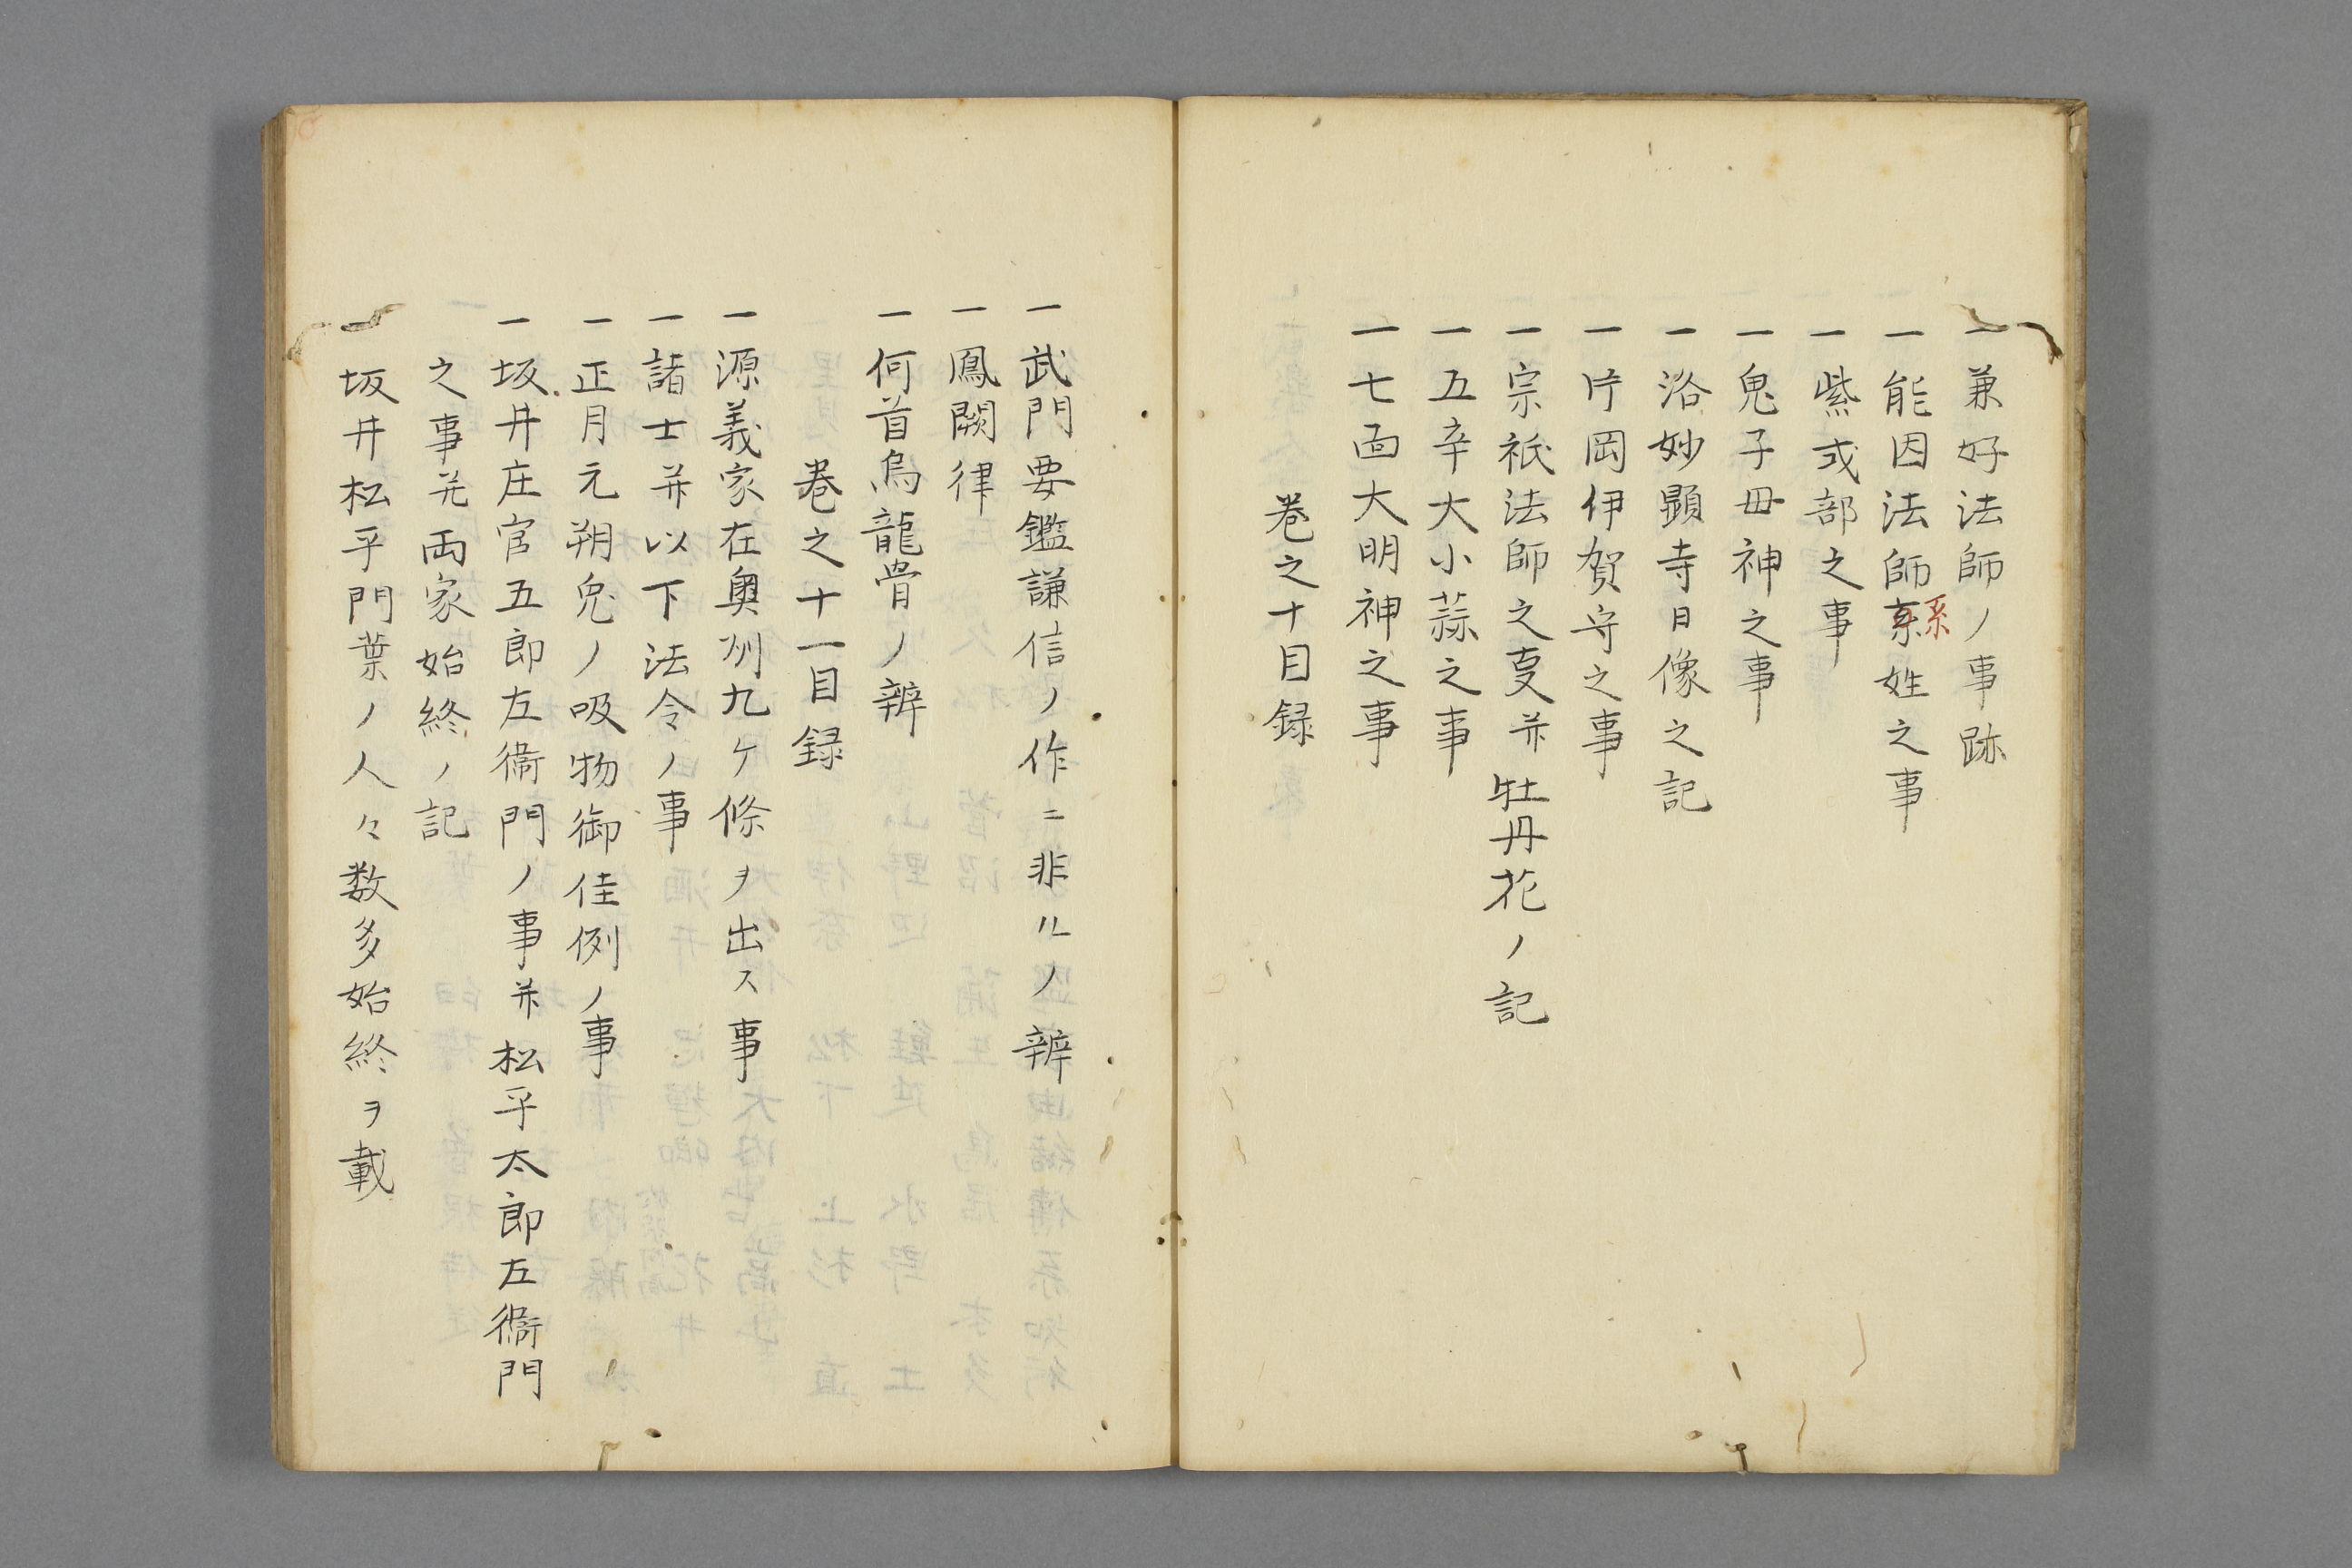 一兼好法師ノ事跡
一能因法師系姓之事
系
一紫式部之事
一鬼子母神之事
一洛妙顕寺日像之記
一片岡伊賀守之事
一宗祇法師之㕝并牡丹花ノ記
一五辛大小蒜之事
一七面大明神之事
巻之十目録
一武門要鑑謙信ノ作ニ非ルノ辨
一鳳闕律
一何首烏龍骨ノ辨
巻之十一目録
一源義家在奥州九ケ條ヲ出ス事
一諸士并以下法令ノ事
一正月元朔兎ノ吸物御佳例ノ事
一坂井庄官五郎左衛門ノ事并松平太郎左衛門
之事并両家始終ノ記
一坂井松平門葉ノ人々数多始終ヲ載